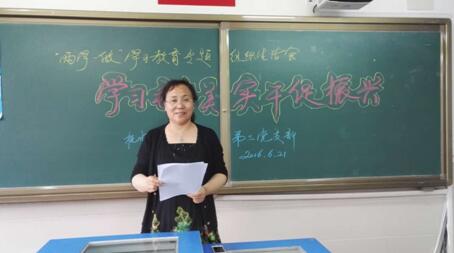 “两学一做”学习教育专题 组织生活会
学习 实干促振兴
党支部
2016.6.21